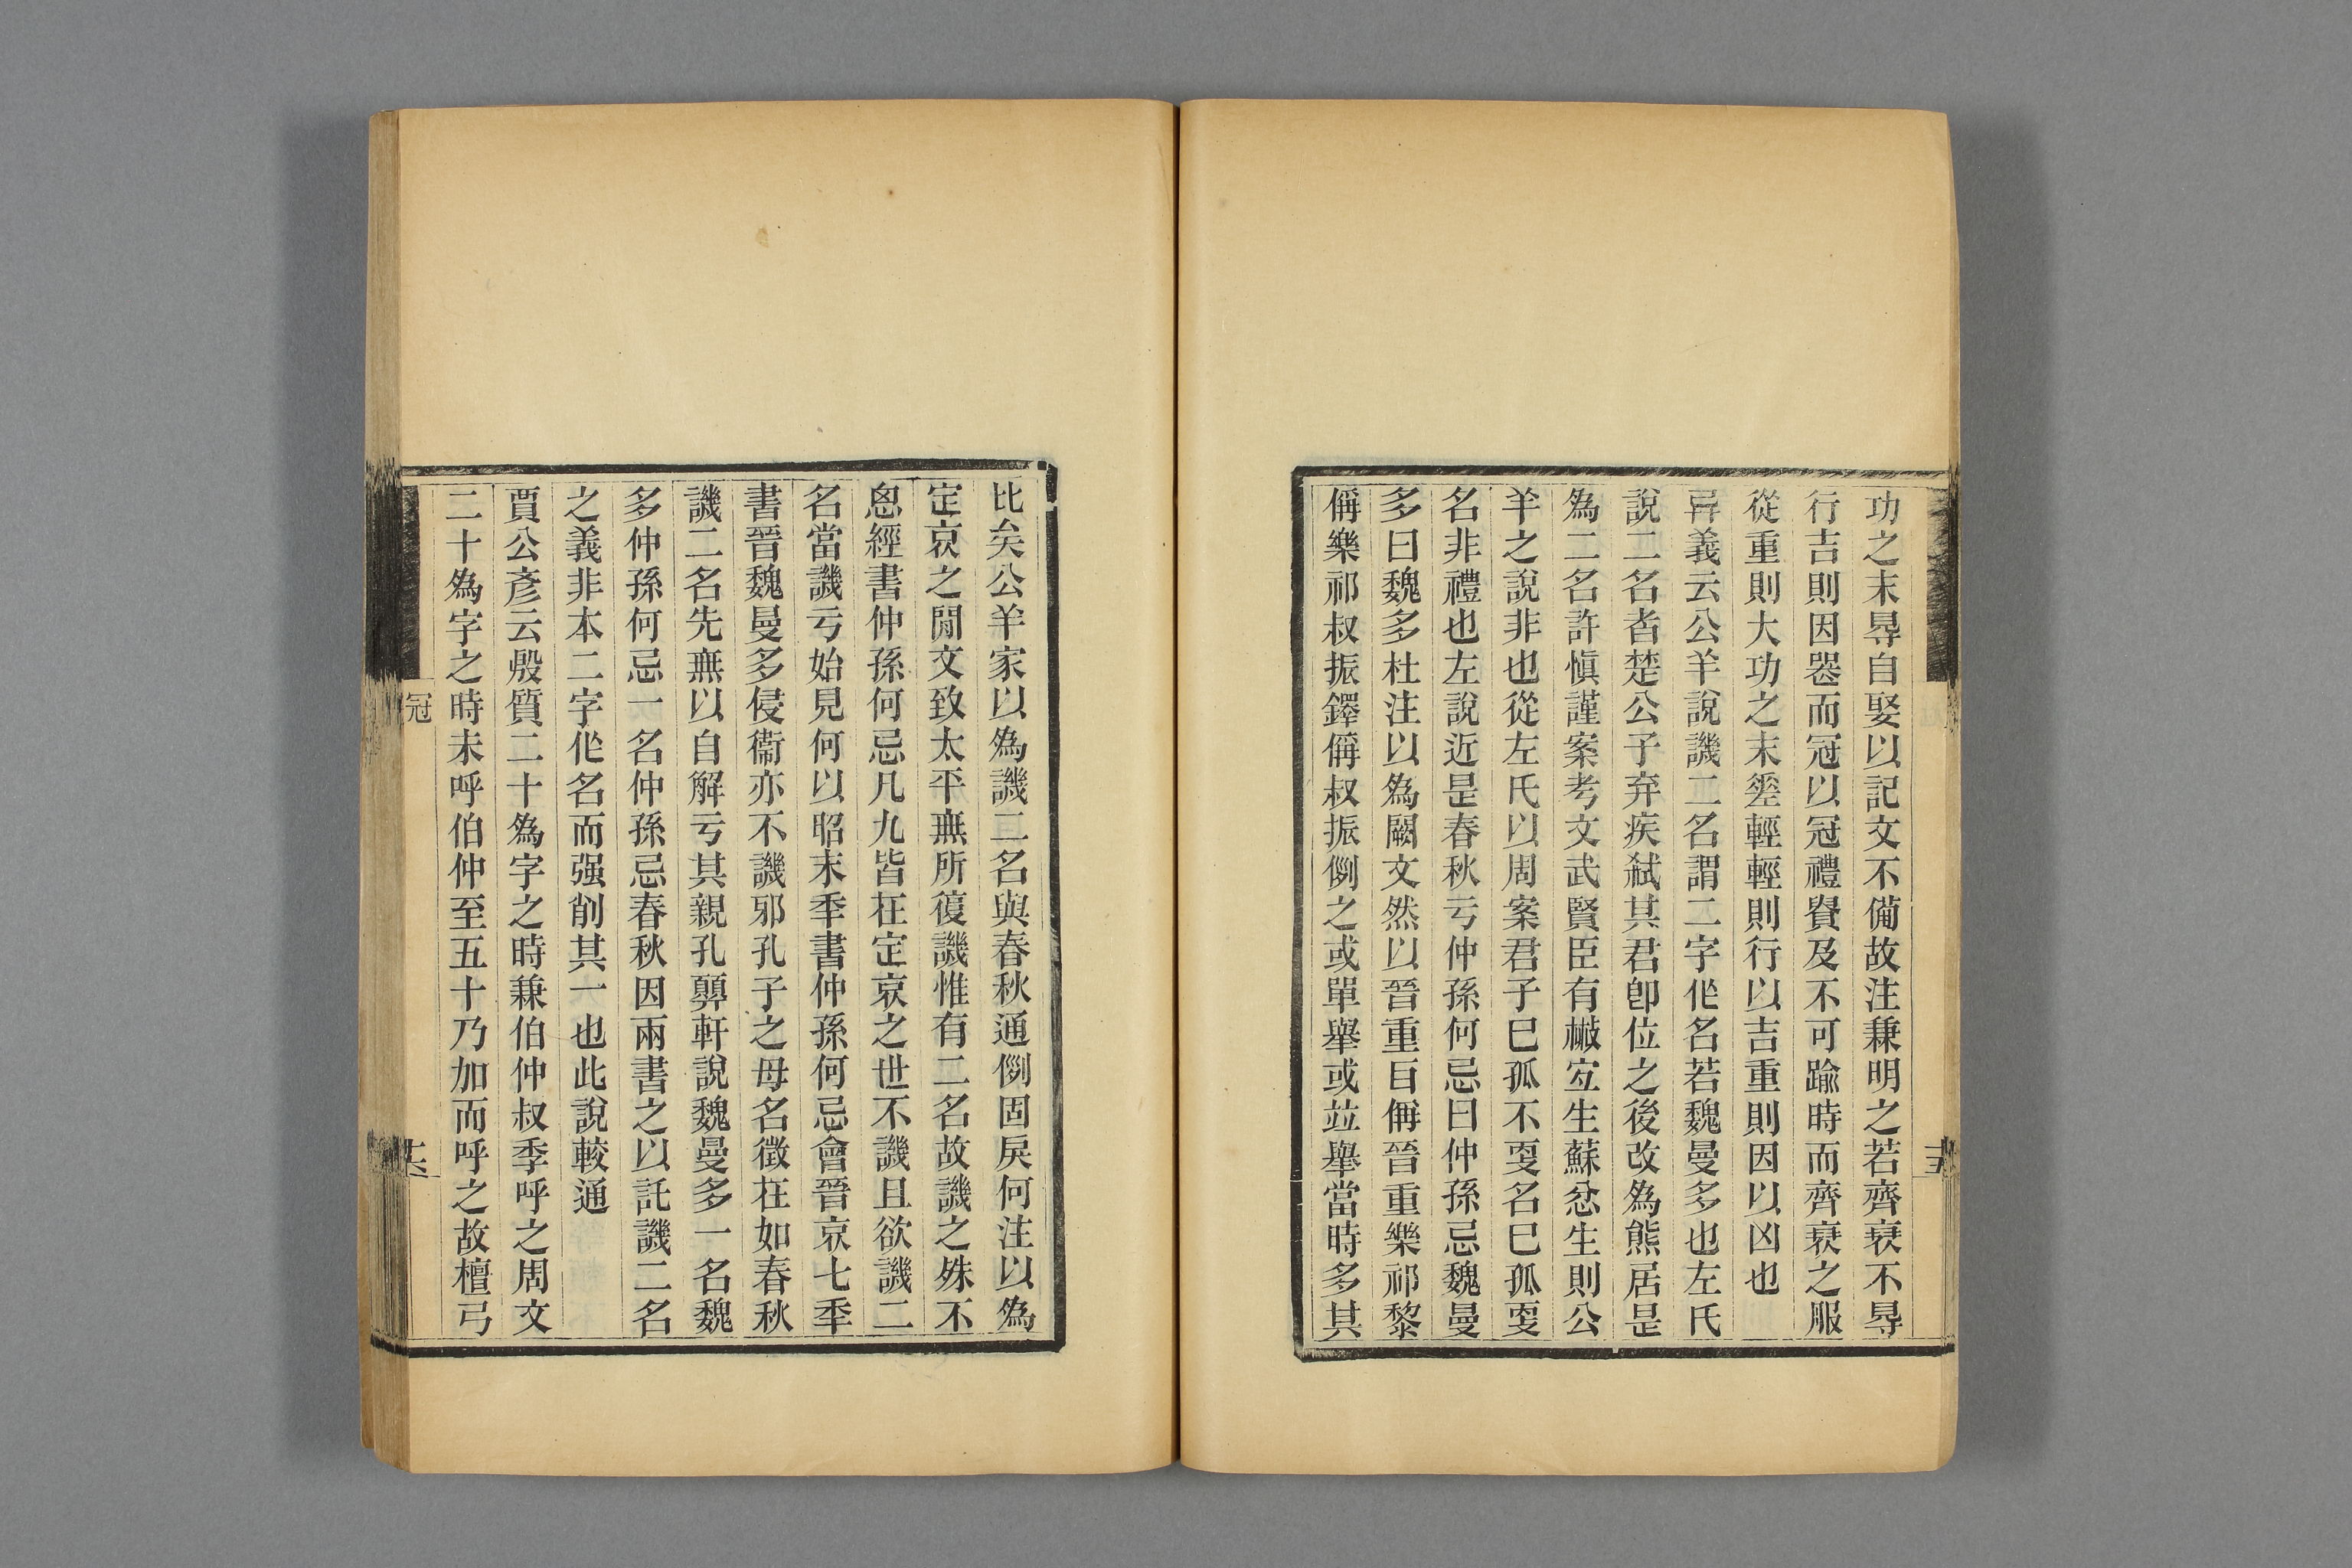 功之末㝵自娶以記文不僃故注兼明之若齊衰不㝵
行吉則因器而冠以冠禮賤及不可踰時而齊衰之服
從重則大功之末輕輕則行以吉重則因以凶也
異義云公羊說譏二名謂二字作名若魏曼多也左氏
說二名者楚公子弃疾弒其君卽位之後改為熊居是
為二名許愼謹案考文武賢臣有散宜生蘇忿生則公
羊之說非也從左氏以周案君子已孤不更名已孤更
名非禮也左說近是春秋亏仲孫何忌曰仲孫忌魏曼
多曰魏多杜注以為闕文然以晉重自偁晉重樂祁黎
偁樂祁叔振鐸偁叔振例之或單舉或竝舉當時多其
比矣公羊家以為譏二名與春秋通例固戾何注以為
定哀之閒文致太平無所復譏惟有二名故譏之殊不
悤經書仲孫何忌凡九皆在定哀之世不譏且欲譏二
名當譏亏始見何以昭末季書仲孫何忌會晉哀七季
書晉魏曼多侵衞亦不譏邪孔子之母名徵在如春秋
譏二名先無以自解亏其親孔顨軒說魏曼多一名魏
多仲孫何忌一名仲孫忌春秋因兩書之以託譏二名
之義非本二字作名而强削其一也此說較通
賈公彥云殷質二十為字之時兼伯仲叔季呼之周文
二十為字之時未呼伯仲至五十乃加而呼之故檀弓
冠